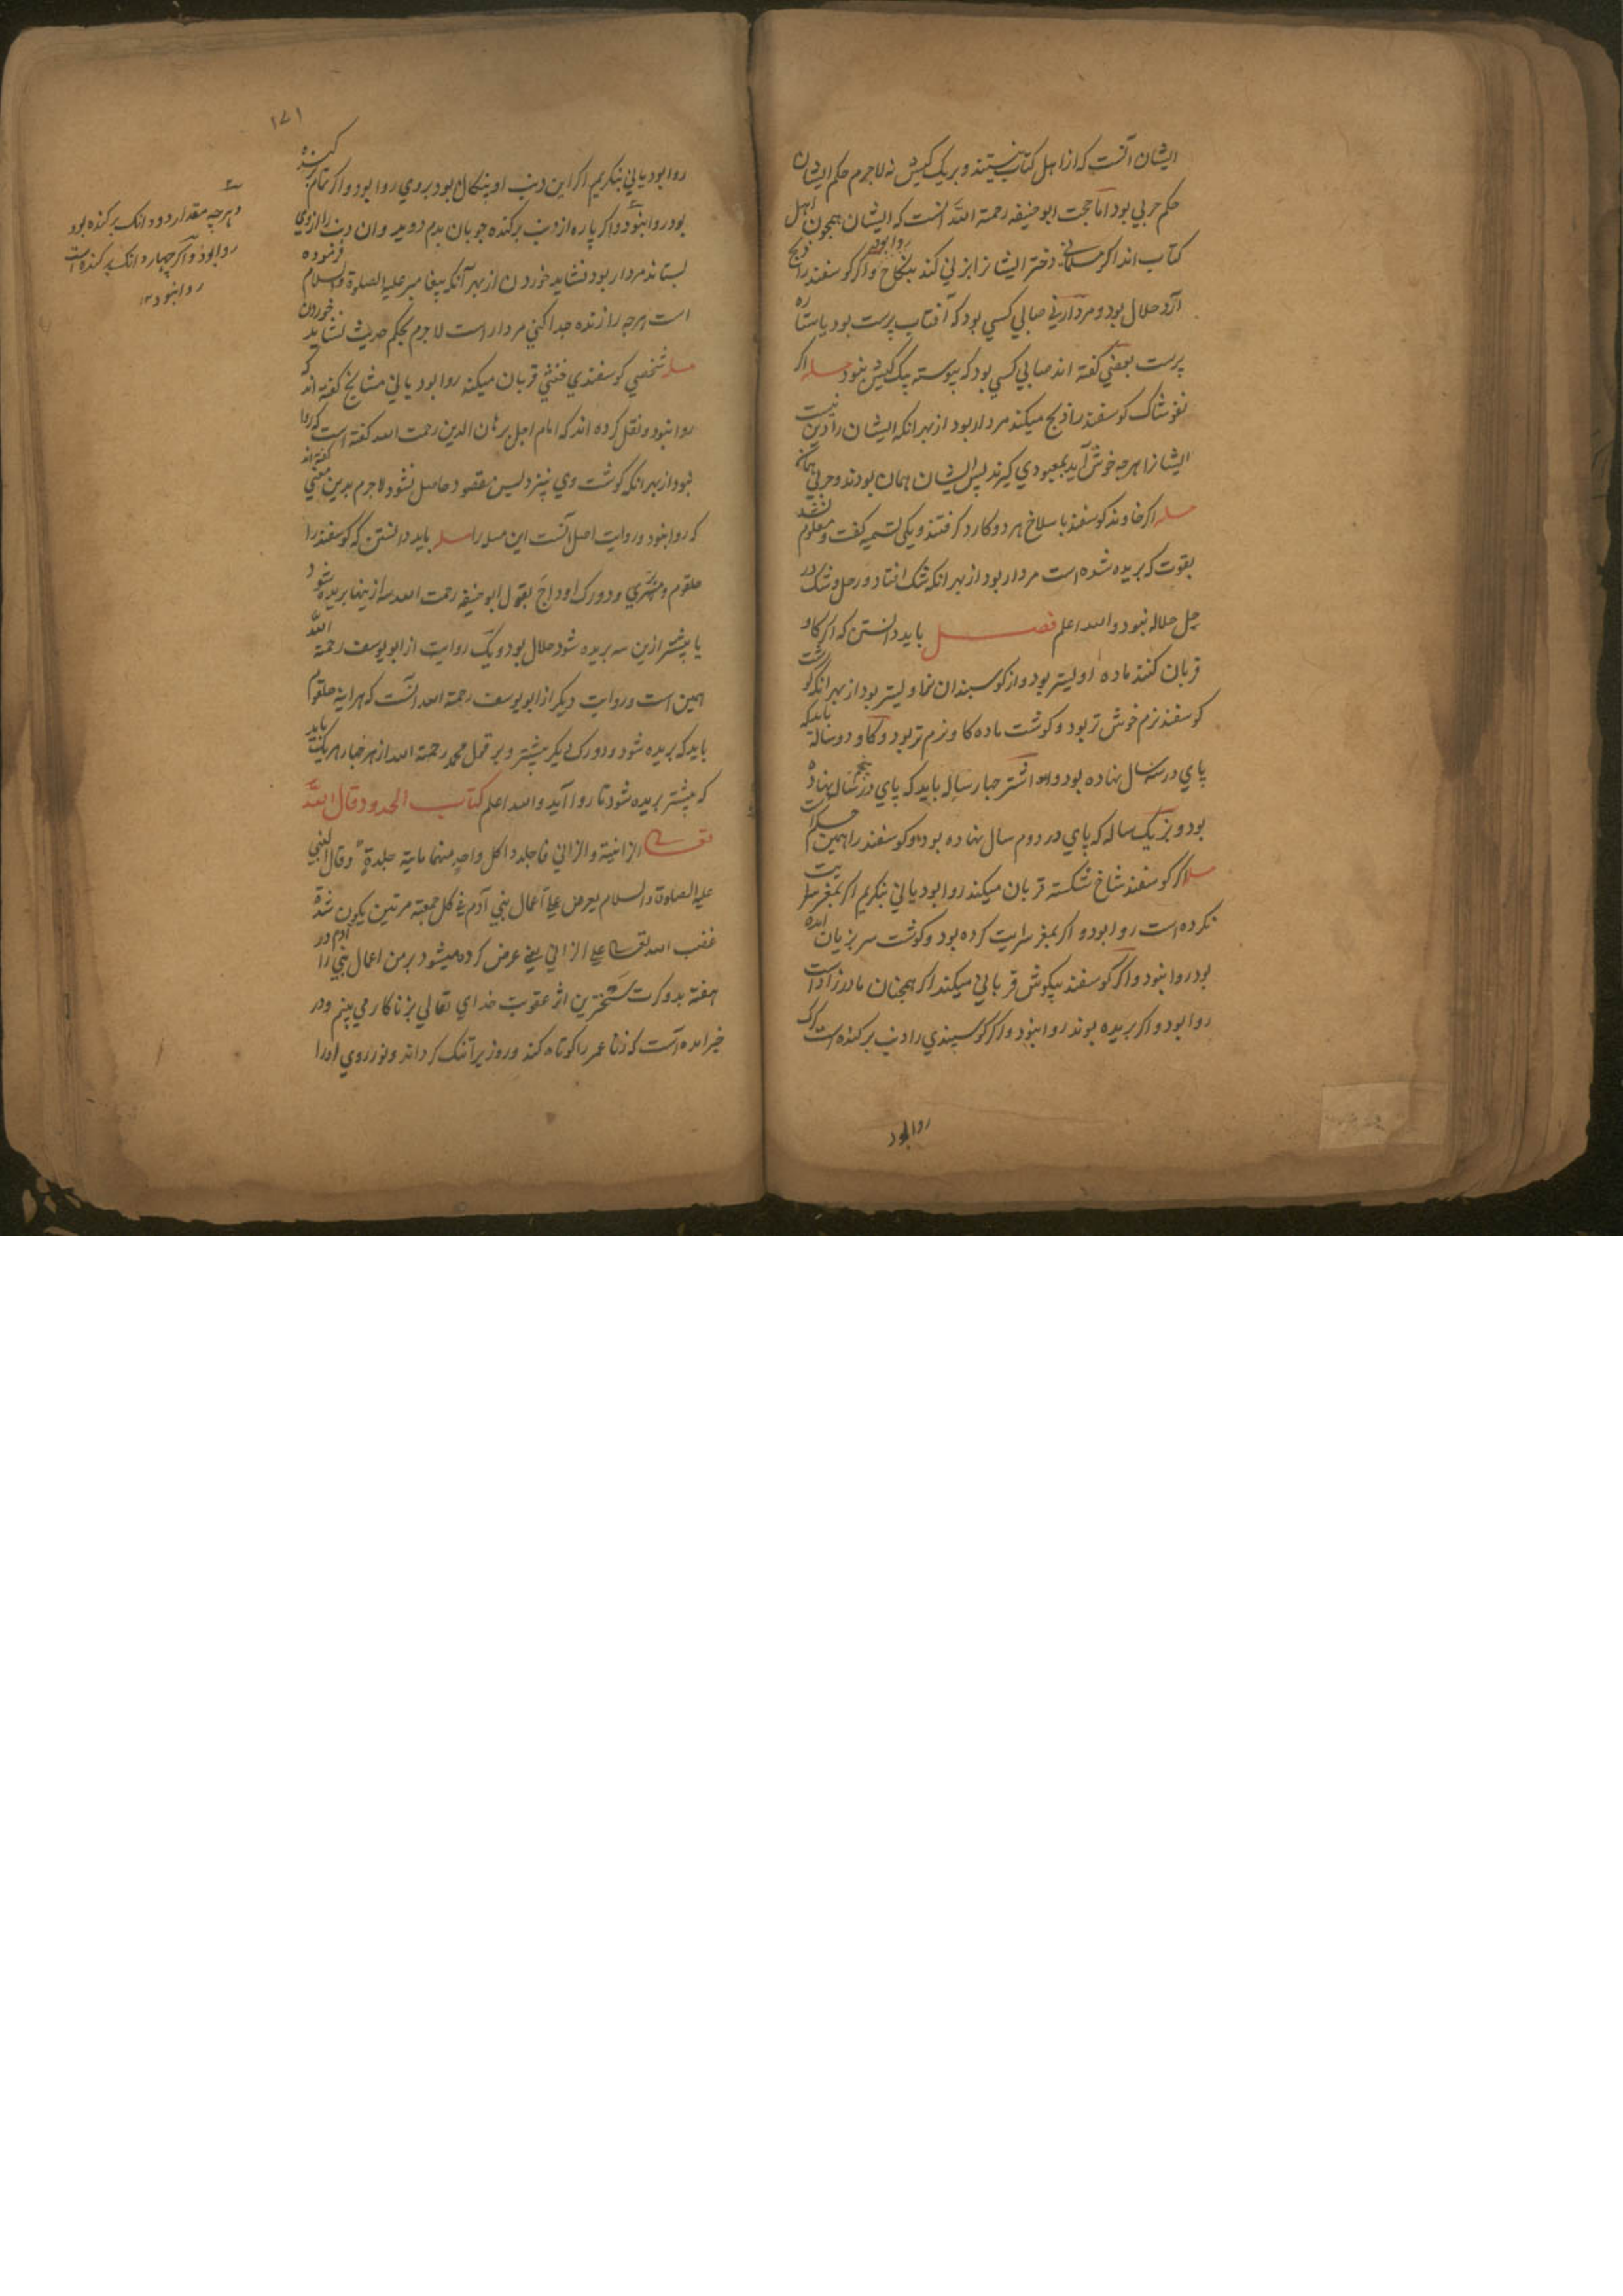 ایشان آنست که از اهل کتاب نیستند و بر یک کیش نه لاجرم حکم ایشان
حکم حربی بود اما حجت ابوحنیفه رحمة الله آنست که ایشان همچون اهل
کتاب اند اگر مسلمانی دختر ایشانرا بزنی کند بنکاح روا بود و اگر گوسفند را ذبح
آرد حلال بود و مردار نی صابی کسی بود که آفتاب پرست بود یا ستاره
پرست بعضی گفته اند صابی کسی بود که پیوسته بیک کیش نبود مسله اگر
نغوشاک گوسفند را ذبح میکند مردار بود از بهر آنکه ایشان را دین نیست
ایشانرا هرچه خوش آید بمعبودی گیرند پس ایشان همان بودند و حربی همان
مسله اگر خاوند گوسفند با سلاخ هر دو کارد گرفتند و یکی تسمیه گفت و معلوم نشد
بقوت که بریده شده است مردار بود از بهر آنکه شک افتاد در حل و شک در
حل حلاله نبود والله اعلم فصل باید دانستن که اگر گاو
قربان کنند ماده اولیتر بود و از گوسبندان نر اولیتر بود از بهر آنکه گوشت
گوسفند نرم خوش تر بود و گوشت ماده گاو نرم تر بود و گاو دوساله باید که
پای در سه سال نهاده بود و اشتر چهارساله باید که پای در پنجم سال نهاده
بود و بز یک ساله که پای در دوم سال نهاده بود و گوسفند را همین حکم است
مسله اگر گوسفند شاخ شکسته قربان میکند روا بود یا نی بنگریم اگر بمغز سرایت
نکرده است روا بود و اگر بمغز سرایت کرده بود و گوشت سر بزیان آمده
بود روا نبود و اگر گوسفند بیگوش قربانی میکند اگر همچنان مادرزاد است
روا بود و اگر بریده بوند روا نبود و اگر گوسپندی را دنب برکنده است گرگ
روا بود
۱۷۱
روا بود یا نی بنگریم اگر این دنب او بنکال بود بروی روا بود و اگر تمام برکنده
بود روا نبود و اگر پاره از دنب برکنده چوبان بدم دوید و آن دنب را از وی
بستاند مردار بود نشاید خوردن از بهر آنکه پیغامبر علیه الصلوة والسلام فرموده
است هرچه را زنده جدا کنی مردار است لاجرم بحکم حدیث نشاید خوردن
مسله شخصی گوسفندی خنثی قربان میکند روا بود یا نی مشایخ گفته اند که
روا نبود و نقل کرده اند که امام اجل برهان الدین رحمت الله گفته است که روا
نبود از بهر آنکه گوشت وی نپزد پس مقصود حاصل نشود لاجرم بدین معنی گفته اند
که روا نبود و روایت اصل آنست این مسله را مسله باید دانستن که گوسفند را
حلقوم و مری و دو رگ اوداج بقول ابوحنیفه رحمت الله سه از ینها بریده شود
یا بیشتر ازین سه بریده شود حلال بود و یک روایت از ابویوسف رحمة الله
همین است و روایت دیگر از ابویوسف رحمة الله آنست که هراینه حلقوم
باید که بریده شود و دو رگ بیشتر و بر قول محمد رحمة الله از هر چهار هر یک باید
که بیشتر بریده شود تا روا آید والله اعلم کتاب الحدود قال الله
تعالی الزانیة والزانی فاجلدوا کل واحد منهما مایة جلدة وقال النبی
علیه الصلوة والسلام یعرض علی اعمال بنی آدم فی کل جمعة مرتین یکون شدة
غضب الله تعالی علی الزانی یعنی عرض کرده میشود بر من اعمال بنی آدم را در
هفته بدو کرت سخترین اثر عقوبت خدای تعالی بزناکار می بینم و در
خبر آمده است که زنا عمر را کوتاه کند و روزی را تنک گرداند و نور روی او را
و هرچه مقدار دو دانک برکنده بود
روا بود و اگر چهار دانک برکنده است
روا نبود ۱۲